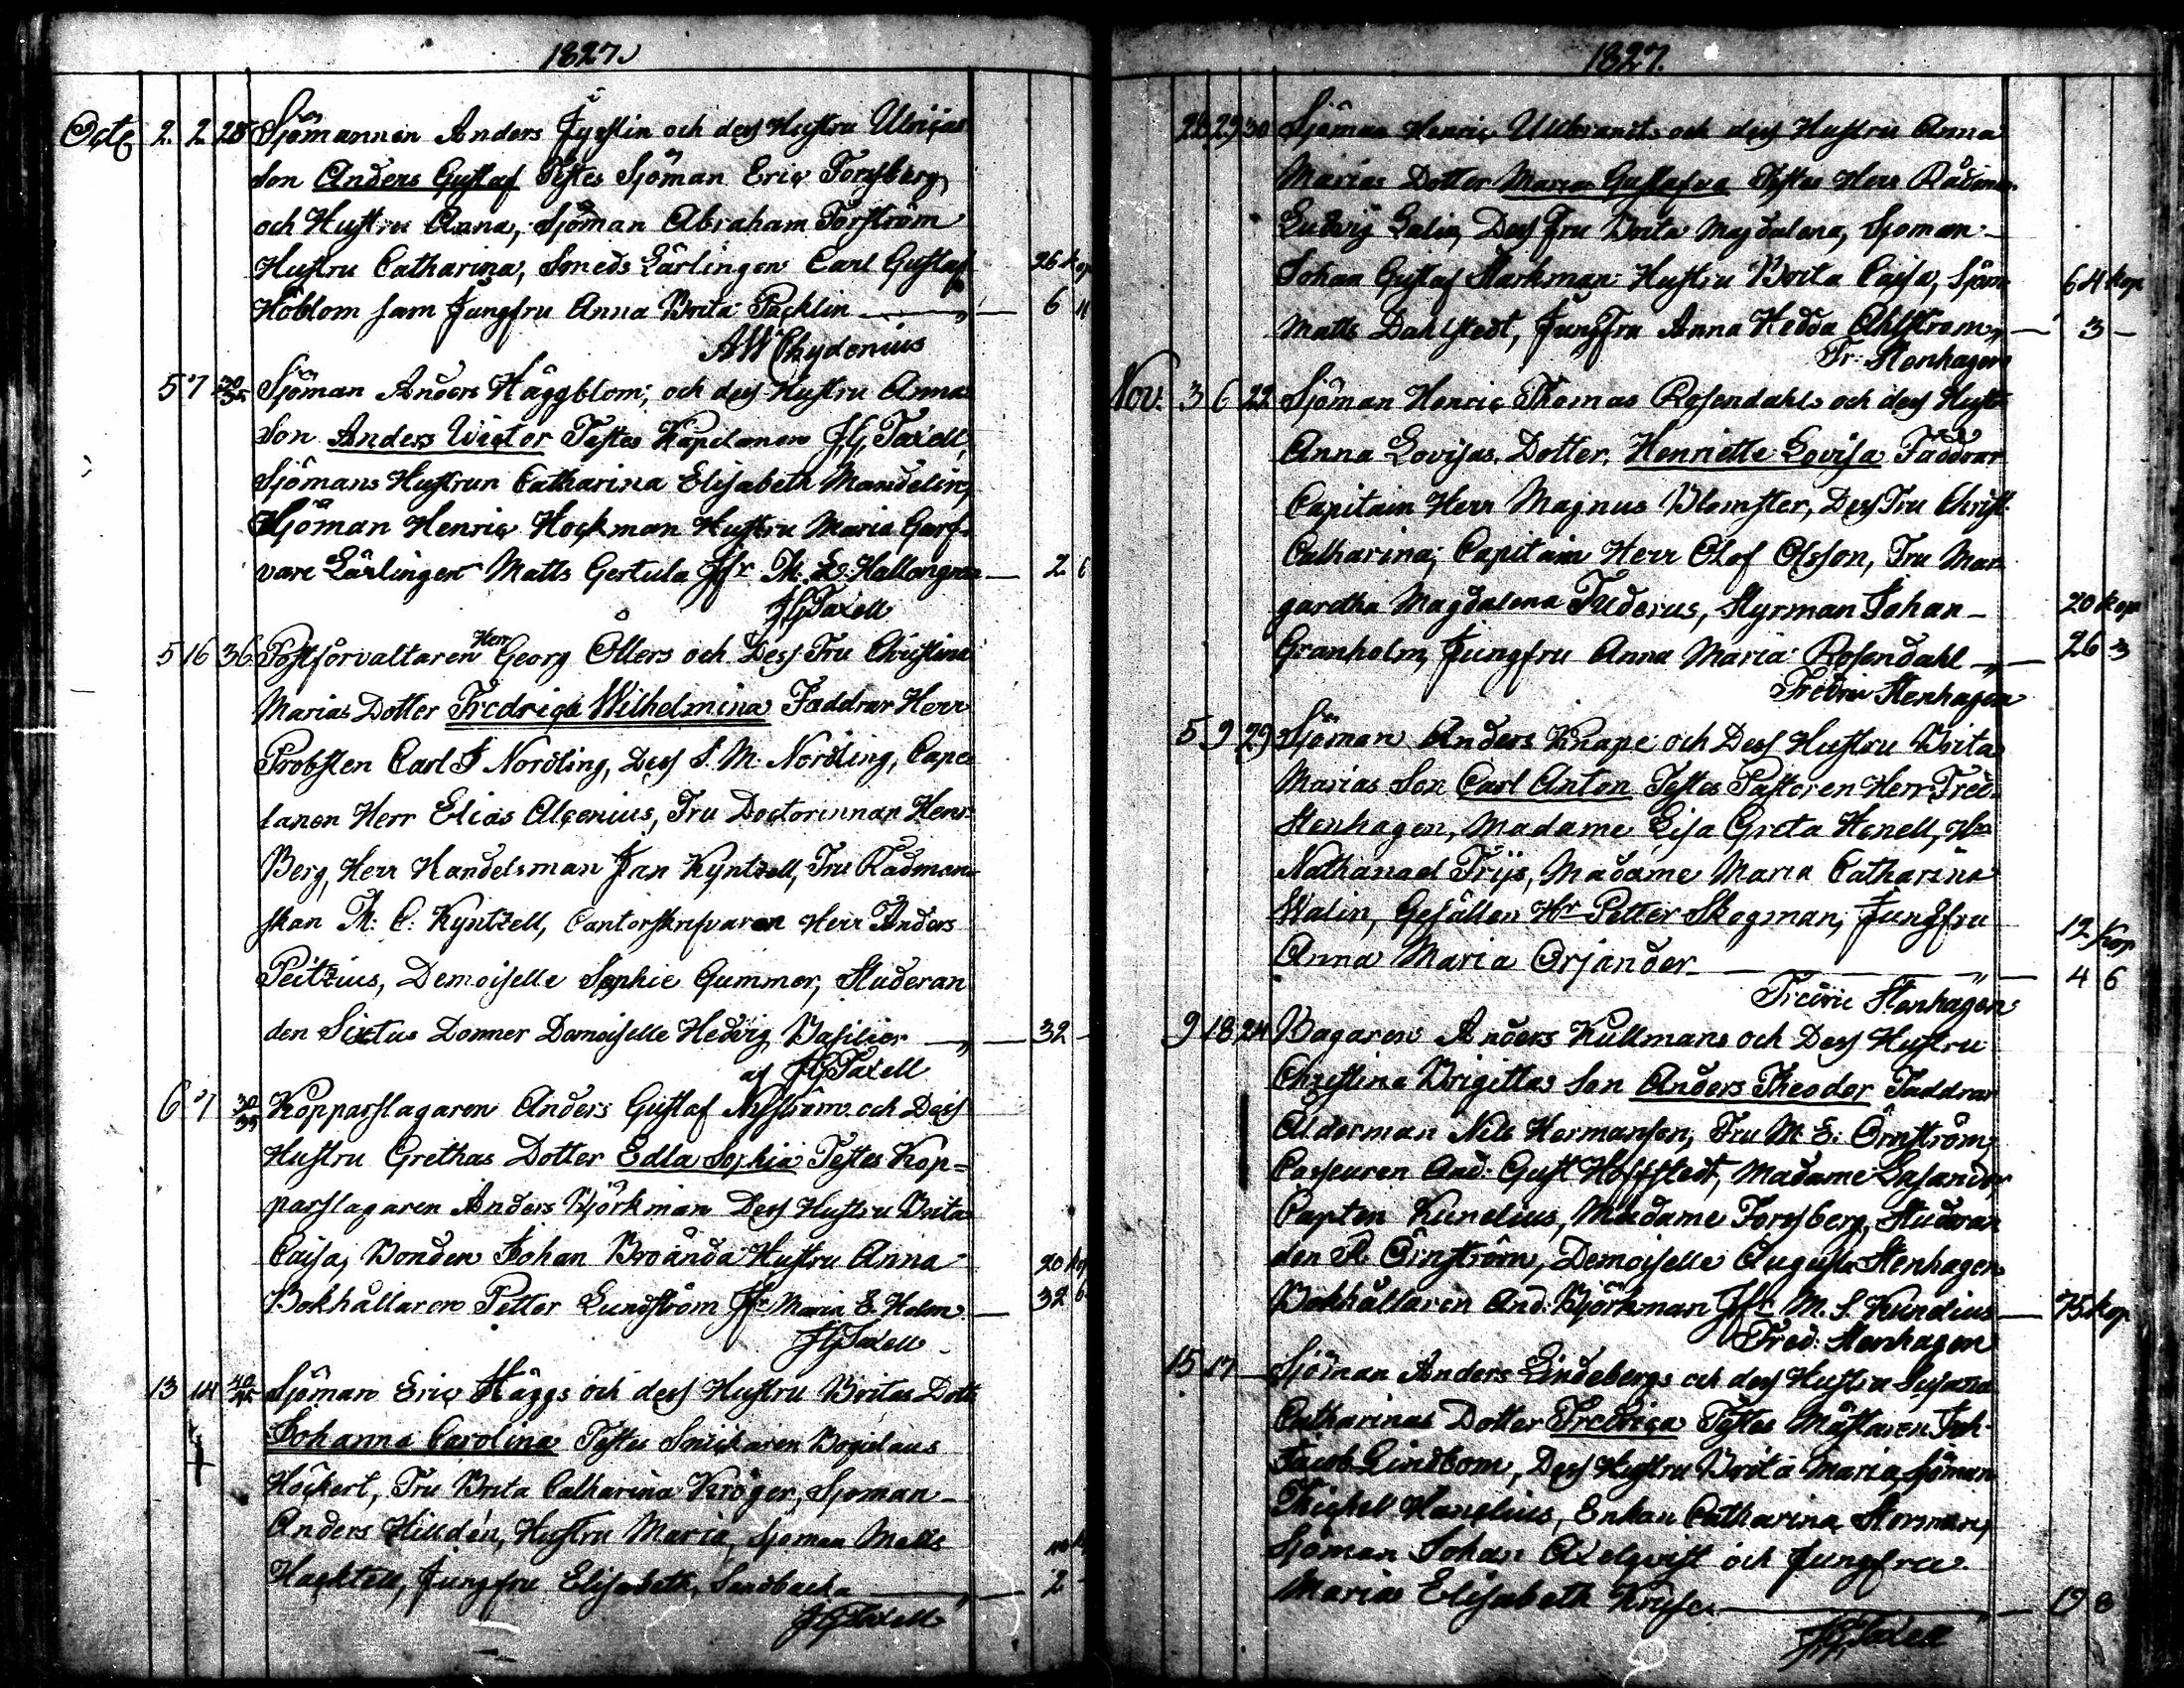 1827.
Octb 2. 2. 28 Sjömannen Anders Fyrstin och dess Hustru Ulricas
Son Anders Gustaf Testes Sjöman Eric Forsberg,
och Hustru Anna, Sjöman Abraham Forström
Hustru Catharina, Smeds Lärlingen Carl Gustaf 26 kop
Höblom sam Jungfru Anna Brita Packlin 6
AW Chydenius
5 7 30/35 Sjöman Anders Häggblom, och dess Hustru Annas
Son Anders Wictor Testes Kapelanen J.G. Taxell,
Sjömans Hustrun Catharina Elisabeth Mandelin,
Sjöman Henric Hockman Hustru Maria Garf-
vare Lärlingen Matts Gertula Jfr M. L. Hallongren 2 6
JGTaxell
5 16 36 Postförvaltaren Herr Georg Öllers och Dess Fru Christina
Marias Dotter Fredrica Wilhelmina Faddrar Herr
Probsten Carl J Nordling, Dess S. M. Nordling, Cape-
lanen Herr Elias Alcenius, Fru Doctorinnan Henr:
Berg, Herr Handelsman Jan Kyntzell, Fru Rådmans-
skan M: C: Kyntzell, Cantorskrifvaren Herr Anders
Peitzius, Demoiselle Sophie Gummer, Studeran
den Sixtus Donner Demoiselle Hedvig Basilier 32 -
af JGTaxell
6 7 30/35 Kopparslagaren Anders Gustaf Nyström och Dess
Hustru Grethas Dotter Edla Sophia Testes Kop=
parslagaren Anders Björkman Dess Hustru Brita
Caisa, Bonden Johan Broända Hustru Anna 20 kop
Bokhållaren Petter Lundström Jfr Maria E. Holm 32 6
JGTaxell
13 14 40/45 Sjöman Eric Häggs och dess Hustru Britas Dott
Johanna Carolina Testes Snickaren Bogislaus
Höckert, Fru Brita Catharina Kröger, Sjöman
Anders Hilldén, Hustru Maria, Sjöman Matts
Hacktell, Jungfru Elisabeth Sandbacka 2 -
JGTaxell
1827.
28 29 30 Sjöman Henric Ullbrands och dess Hustru Anna
Marias Dotter Maria Gustafva Testes Herr Rådman
Ludvig Galin, Dess Fru Brita Magdalena, Sjöman
Johan Gustaf Starkman Hustru Brita Caisa, Sjöm 64 kop
Matts Dahlstedt, Jungfru Anna Hedda Ahlström 3 -
Fr: Stenhagen
Nov. 3 6 22 Sjöman Henric Thomas Rosendahls och dess Hustr
Anna Lovisas Dotter, Henriette Lovisa Faddrar
Capitain Herr Magnus Blomster, Dess Fru Christ.
Catharina, Capitain Herr Olof Olsson, Fru Mar-
garetha Magdalena Tuderus, Styrman Johan 20 kop
Granholm, Jungfru Anna Maria Rosendahl 26 3
Fredric Stenhagen
5 9 29 Sjöman Anders Knape och Dess Hustru Brita
Marias Son Carl Anton Testes Pastoren Herr Fred:
Stenhagen, Madame Lisa Greta Henell, Hr
Nathanael Frijs, Madame Maria Catharina
Walin, Gesällen Hr Petter Skogman, Jungfru 12 kop
Anna Maria Orjander 4 6
Fredric Stenhagen
9 18 24 Bagaren Anders Kullmans och Dess Hustru
Christina Brigittas Son Anders Theodor Faddrar
Alderman Nils Hermanson, Fru M. E: Örnström,
Casseuren And: Gust Hoffstedt, Madame Lasander,
Capten Kunelius, Madame Forssberg, Studeran
den R. Örnström, Demoiselle Augusta Stenhagen
Bokhållaren And: Björkman Jfr M. S. Kunelius 75 kop
Fred: Stenhagen
15 17 Sjöman Anders Lindebergs och dess Hustru Susanna
Catharinas Dotter Fredrica Testes Mästaren Joh-
Jacob Lindbom, Dess Hustru Brita Maria, Sjöman
Michel Hanelius, Enkan Catharina Storman,
Sjöman Johan Axelqvist och Jungfru
Maria Elisabeth Kruse 19 8
JGTaxell